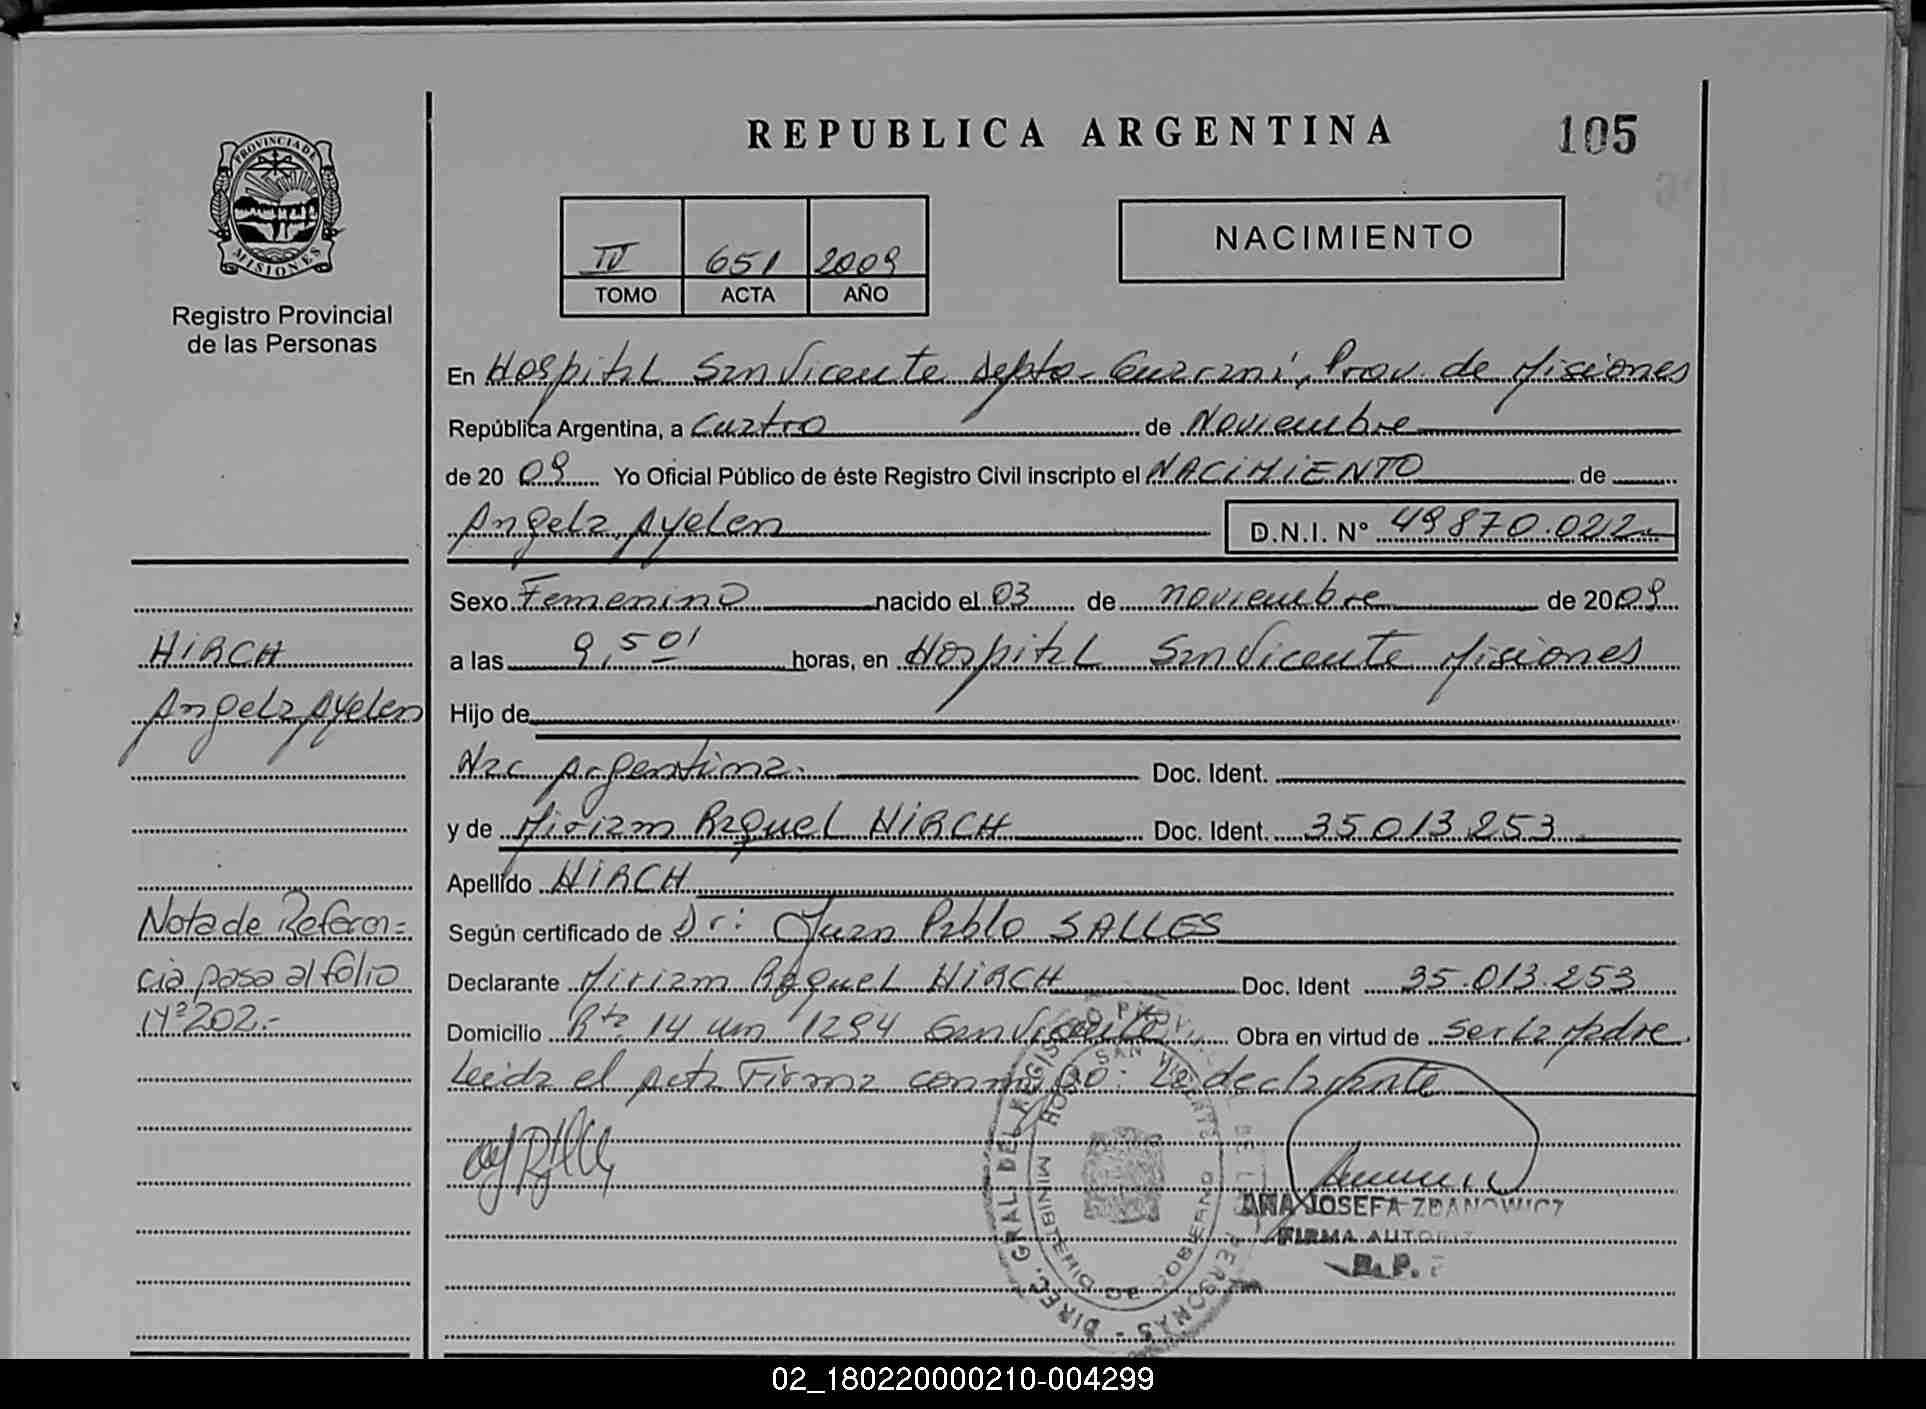 REPUBLICA ARGENTINA
105
PROVINCIA DE
MISIONES
Registro Provincial
de las Personas
IV 651 2009
TOMO ACTA AÑO
NACIMIENTO
En Hospital San Vicente depto- Guarani, Prov. de Misiones
República Argentina, a Cuatro de Noviembre
de 20 09 Yo Oficial Público de éste Registro Civil inscripto el NACIMIENTO de
Angela Ayelen D.N.I. Nº 49870.022
Sexo Femenino nacido el 03 de noviembre de 2009
a las 9,50' horas, en Hospital San Vicente Misiones
Hijo de
Nac Argentina. Doc. Ident.
y de Miriam Raquel HIRCH Doc. Ident. 35013253
Apellido HIRCH
Según certificado de Dr: Juan Pablo SALLES
Declarante Miriam Raquel HIRCH Doc. Ident 35.013.253
Domicilio Rta 14 km 1294 San Vicente Obra en virtud de ser la Madre
Leida el Acta Firma conmigo: La declarante
HIRCH
Angela Ayelen
Nota de Referen=
cia pasa al folio
Nº202.-
DIREC. GRAL. DEL REGISTRO PROV. DE LAS PERSONAS
HOSP. SAN VICENTE
MINISTERIO DE GOBIERNO
ANA JOSEFA ZDANOWICZ
FIRMA
R.P.
02_180220000210-004299